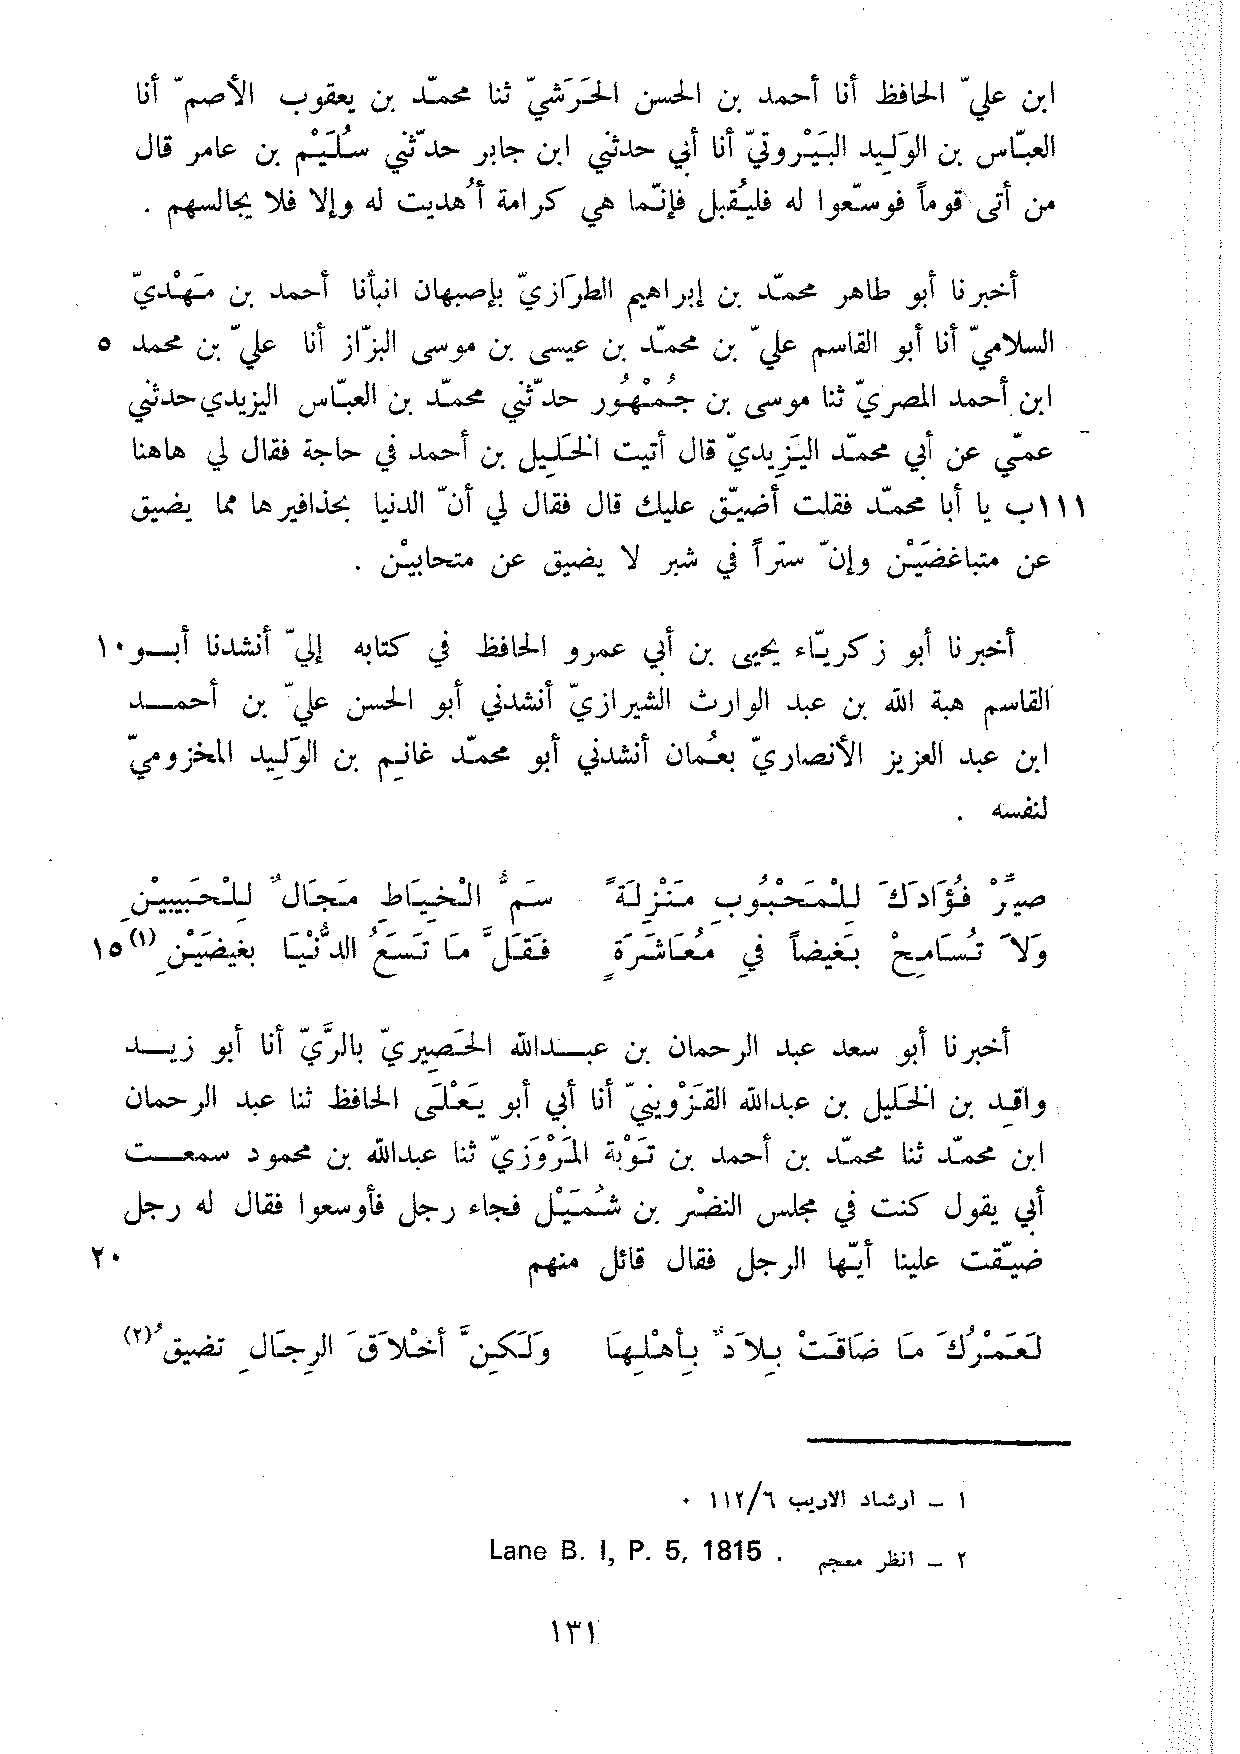 ابن عليّ الحافظ أنا أحمد بن الحسن الحَرَشيّ ثنا محمّد بن يعقوب الأصمّ أنا
العبّاس بن الوَلِيد البَيْروتيّ أنا أبي حدثني ابن جابر حدّثني سُلَيْم بن عامر قال
من أتى قوماً فوسّعوا له فليُقبل فإنّما هي كرامة أُهديت له وإلا فلا يجالسهم .
أخبرنا أبو طاهر محمّد بن إبراهيم الطرَازيّ بإصبهان انبأنا أحمد بن مَهْديّ
السلاميّ أنا أبو القاسم عليّ بن محمّد بن عيسى بن موسى البزّاز أنا عليّ بن محمد ٥
ابن أحمد المصريّ ثنا موسى بن جُمْهُور حدّثني محمّد بن العبّاس اليزيدي حدثني
عمّي عن أبي محمّد اليَزِيديّ قال أتيت الخَلِيل بن أحمد في حاجة فقال لي هاهنا
١١١ب يا أبا محمّد فقلت أضيّق عليك قال فقال لي أنّ الدنيا بحذافيرها مما يضيق
عن متباغضَيْن وإنّ سترًا في شبر لا يضيق عن متحابيْن .
أخبرنا أبو زكريّاء يحيى بن أبي عمرو الحافظ في كتابه إليّ أنشدنا أبــو ١٠
القاسم هبة الله بن عبد الوارث الشيرازيّ أنشدني أبو الحسن عليّ بن أحمــد
ابن عبد العزيز الأنصاريّ بعُمان أنشدني أبو محمّد غانِم بن الوَلِيد المخزوميّ
لنفسه .
صَيِّرْ فُؤَادَكَ لِلْمَحْبُوبِ مَنْزِلَةً سَمُّ الْخِيَاطِ مَجَالٌ لِلْحَبِيبَيْنِ
وَلاَ تُسَامِحْ بَغِيضاً فِي مُعَاشَرَةٍ فَقَلَّ مَا تَسَعُ الدُّنْيَا بَغِيضَيْنِ (١) ١٥
أخبرنا أبو سعد عبد الرحمان بن عبــدالله الحَصِيريّ بالرَّيّ أنا أبو زيــد
واقِد بن الخَلِيل بن عبدالله القَزْوِينيّ أنا أبي أبو يَعْلَى الحافظ ثنا عبد الرحمان
ابن محمّد ثنا محمّد بن أحمد بن تَوْبة المَرْوَزيّ ثنا عبدالله بن محمود سمعــت
أبي يقول كنت في مجلس النضْر بن شُمَيْل فجاء رجل فأوسعوا فقال له رجل
ضيّقت علينا أيّها الرجل فقال قائل منهم ٢٠
لَعَمْرُكَ مَا ضَاقَتْ بِلاَدٌ بِأَهْلِهَا وَلَكِنَّ أَخْلاَقَ الرِجَالِ تضيقُ (٢)
١ – ارشاد الاريب ٦/١١٢ ٠
٢ – انظر معجم Lane B. I, P. 5, 1815 .
١٣١